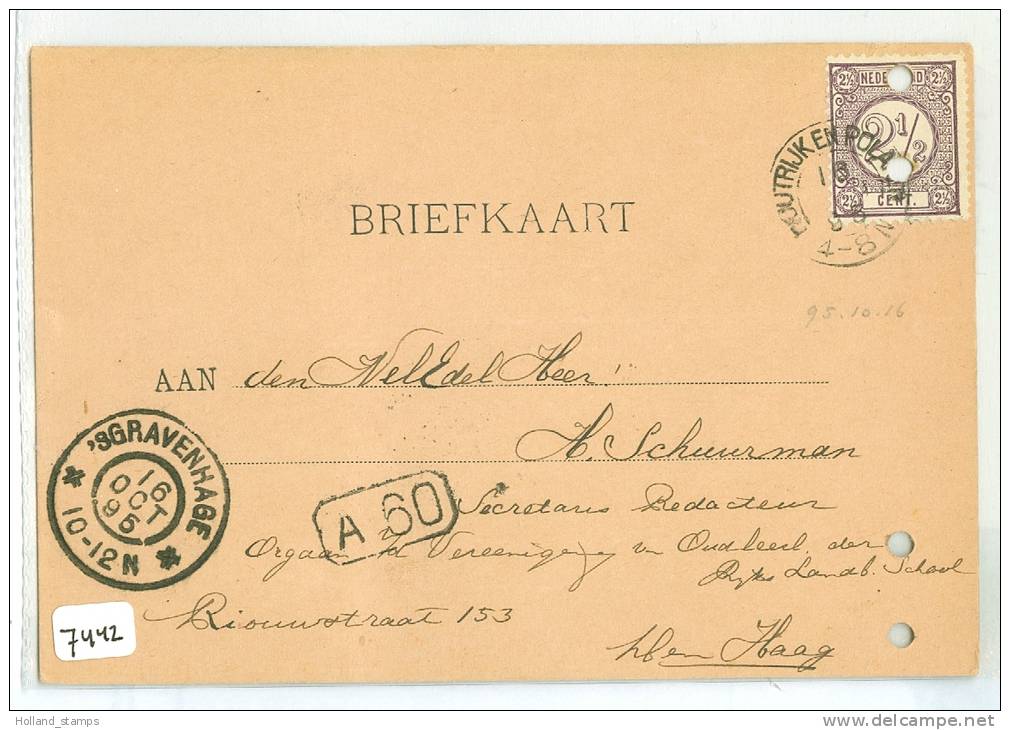 2½ NEDERLAND 2½
2 1/2
2½ CENT. 2½
HOUTRIJK EN POLANEN
4-8 N
BRIEFKAART
95.10.16
AAN den WelEdel Heer!
A. Schuurman
Secretaris Redacteur
Orgaan v/d Vereeniging v. Oudleerl. der
Rijks Landb. School
Riouwstraat 153
Den Haag
'SGRAVENHAGE
16
OCT
95
10-12N
A 60
7442
Holland_stamps
www.delcampe.net